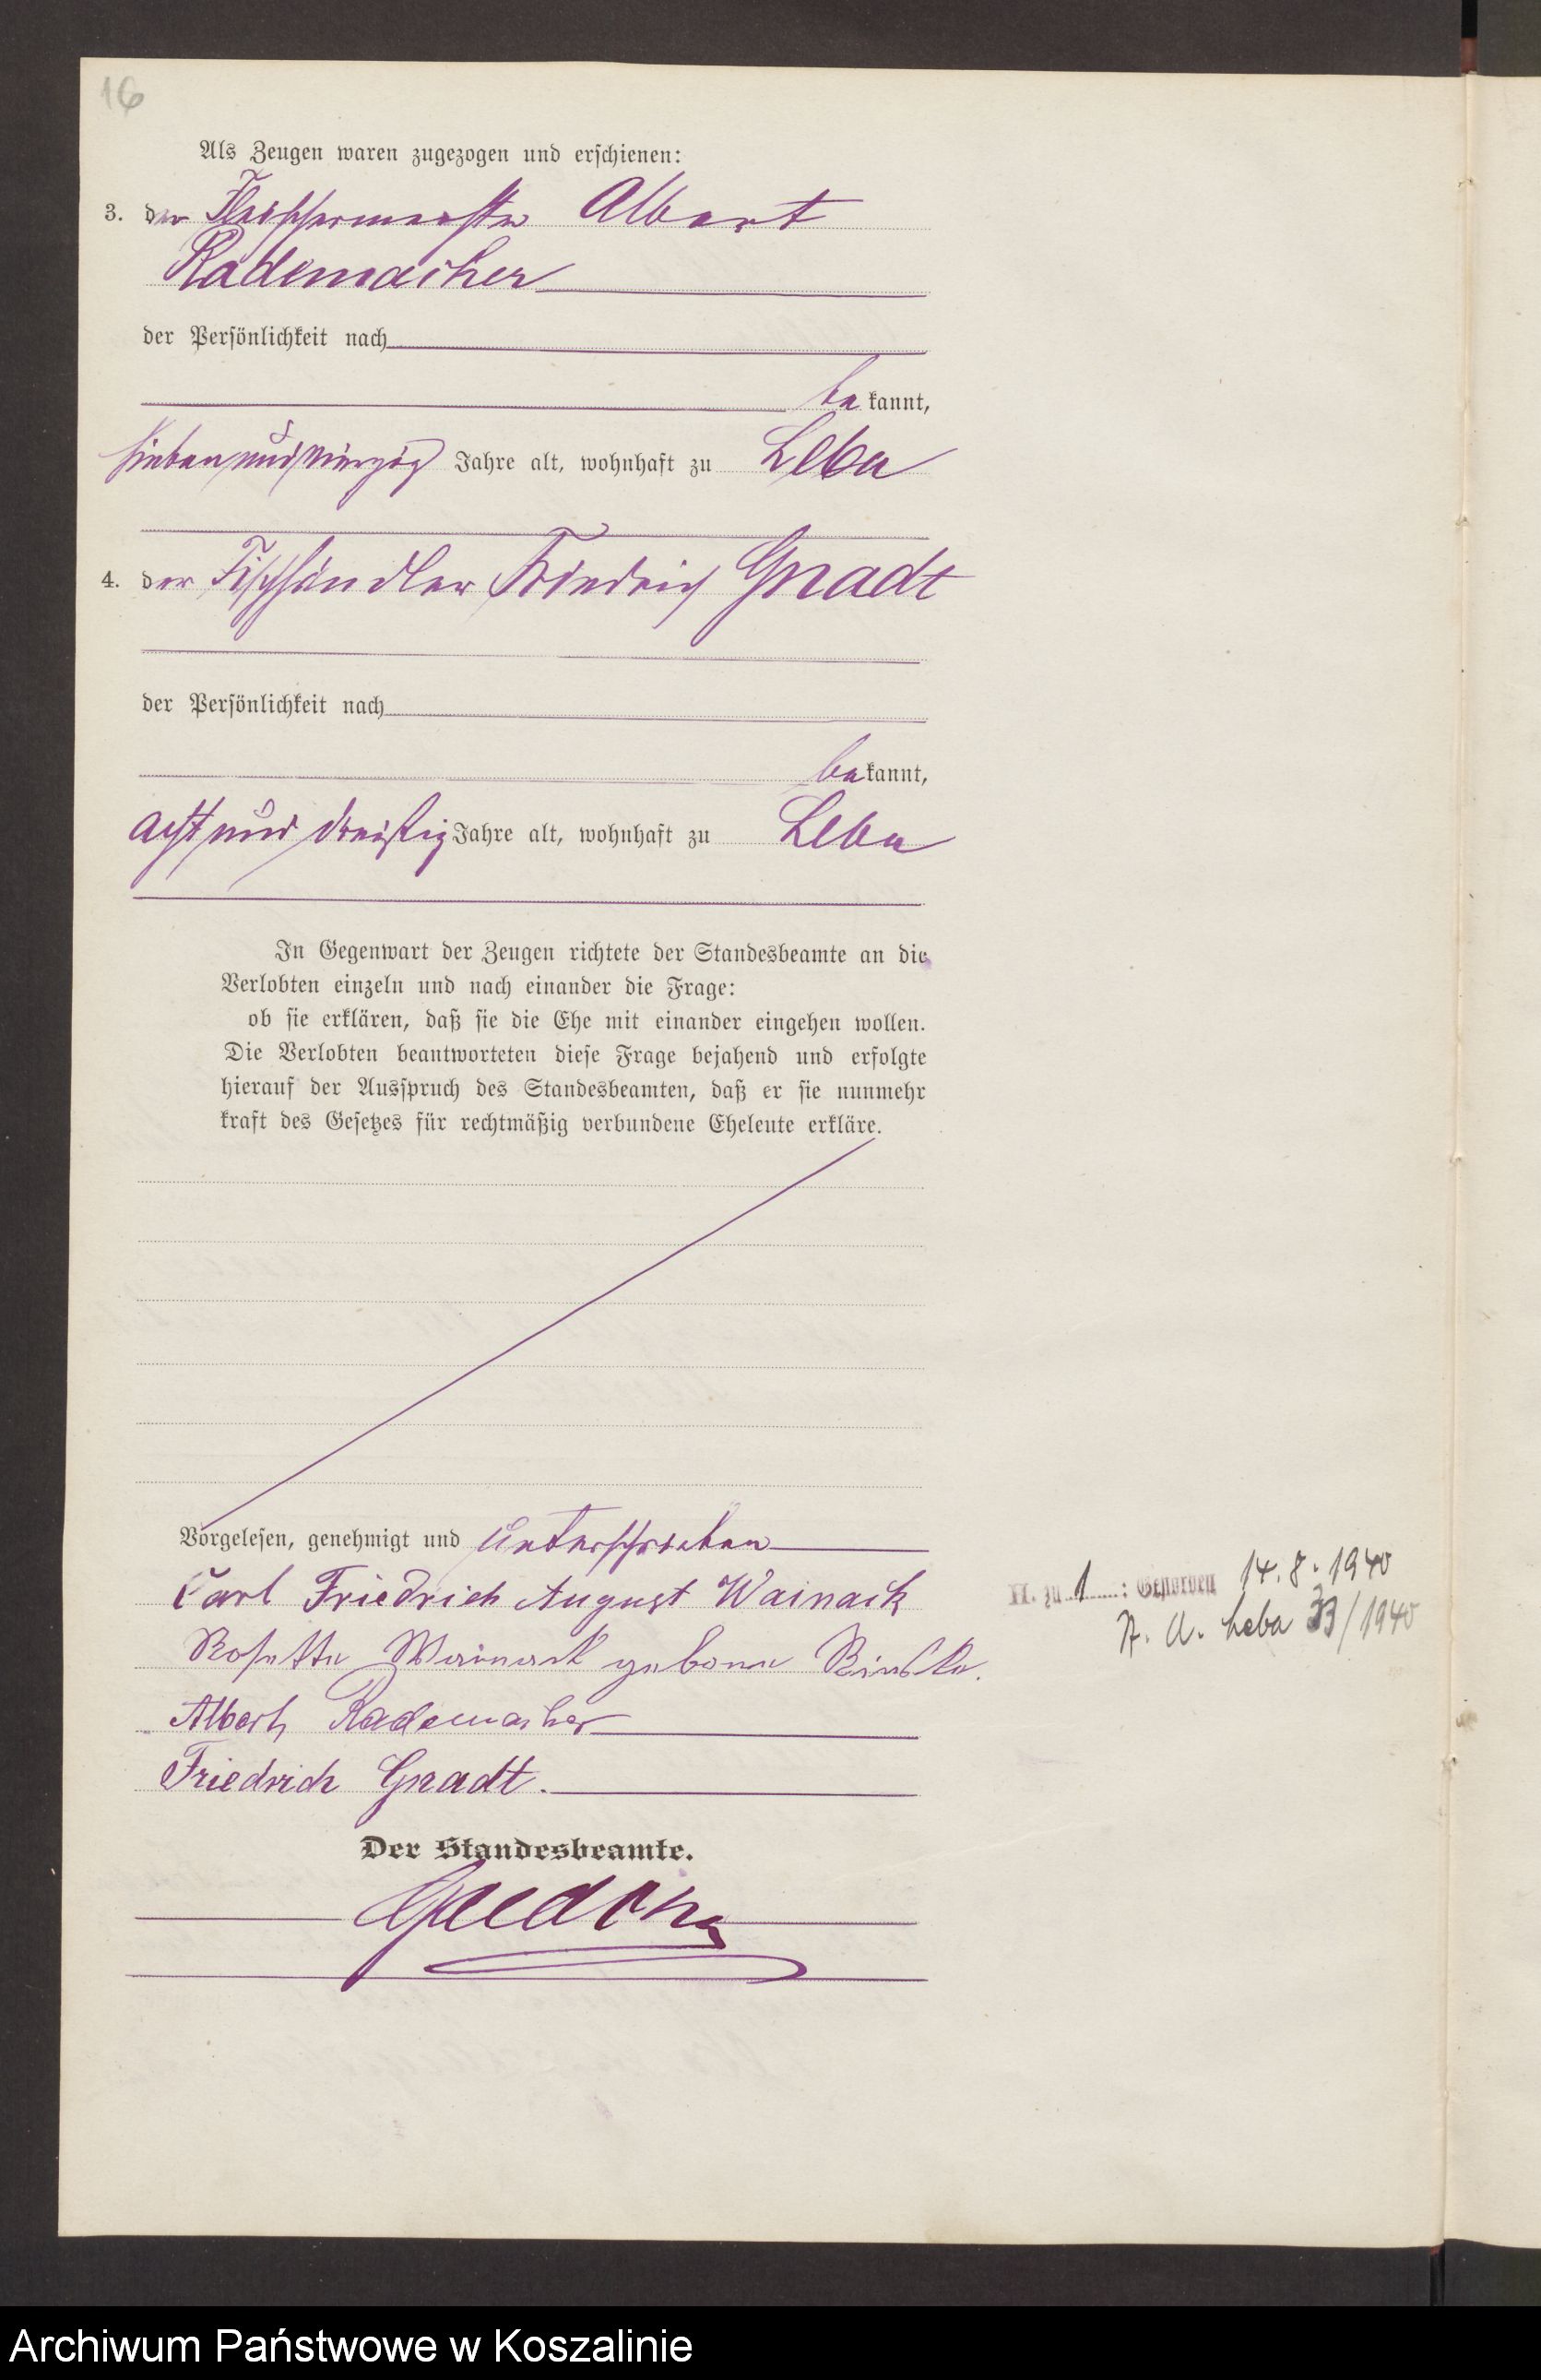 16
Als Zeugen waren zugezogen und erschienen:
3. der Fleischermeister Albert
Rademacher
der Persönlichkeit nach
be kannt,
siebenundvierzig Jahre alt, wohnhaft zu Leba
4. der Fischhändler Friedrich Gnadt
der Persönlichkeit nach
be kannt,
acht und dreißig Jahre alt, wohnhaft zu Leba
In Gegenwart der Zeugen richtete der Standesbeamte an die
Verlobten einzeln und nach einander die Frage:
ob sie erklären, daß sie die Ehe mit einander eingehen wollen.
Die Verlobten beantworteten diese Frage bejahend und erfolgte
hierauf der Ausspruch des Standesbeamten, daß er sie nunmehr
kraft des Gesetzes für rechtmäßig verbundene Eheleute erkläre.
Vorgelesen, genehmigt und unterschrieben
Carl Friedrich August Wainack
H. zu 1 : Gestorben 14.8.1940
St. A. Leba 33/1940
Rosette Wainack geborne
Albert Rademacher
Friedrich Gnadt.
Der Standesbeamte.
Archiwum Państwowe w Koszalinie